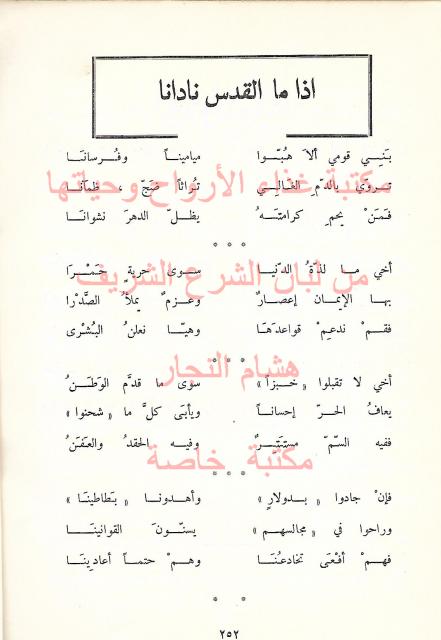 اذا ما القدس نادانا
بَنِي قومي ألاَ هُبّوا ميامينا وفُرسانا
مكتبة غذاء الأرواح وحياتها
بالدّمِ الغالي تُراثًا ضَجّ ، ظمآنا
فمَنْ يحمِ كرامتَهُ يظلّ الدهرَ نشوانا
* * *
أخي ما لذةُ الدنيا سوى حريةٍ حَمْرا
من لبان الشرع الشريف
بها الإيمان إعصارٌ وعزمٌ يملأُ الصَّدْرا
فقمْ ندعمْ قواعدَها وهيّا نعلنُ البُشْرى
* * *
هشام النجار
أخي لا تقبلوا « خبزاً » سوى ما قدّم الوَطَنُ
يعافُ الحرّ إحساناً ويأبَى كلَّ ما « شحنوا »
ففيه السمّ مستَتِرٌ وفيه الحقدُ والعَفَنُ
مكتبة خاصة
* * *
فإنْ جادوا « بدولارٍ » وأهدونا « بَطاطينا »
وراحوا في « مجالسهم » يسنّونَ القوانينا
فهمْ أفعَى تخادعُنا وهمْ حتماً أعادينا
* *
٢٥٢